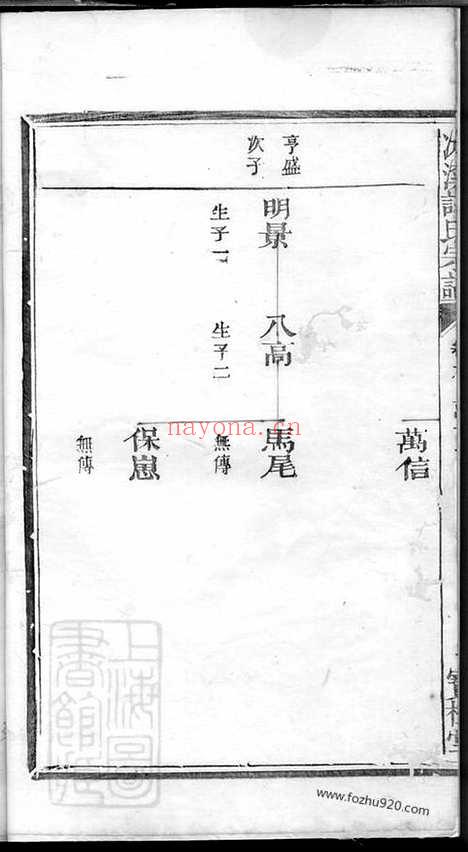 萬信
亨盛
次子
明景
生子一
八高
生子二
馬尾
無傳
保崽
無傳
上海圖
書館藏
nayona.cn
www.fozhu920.com